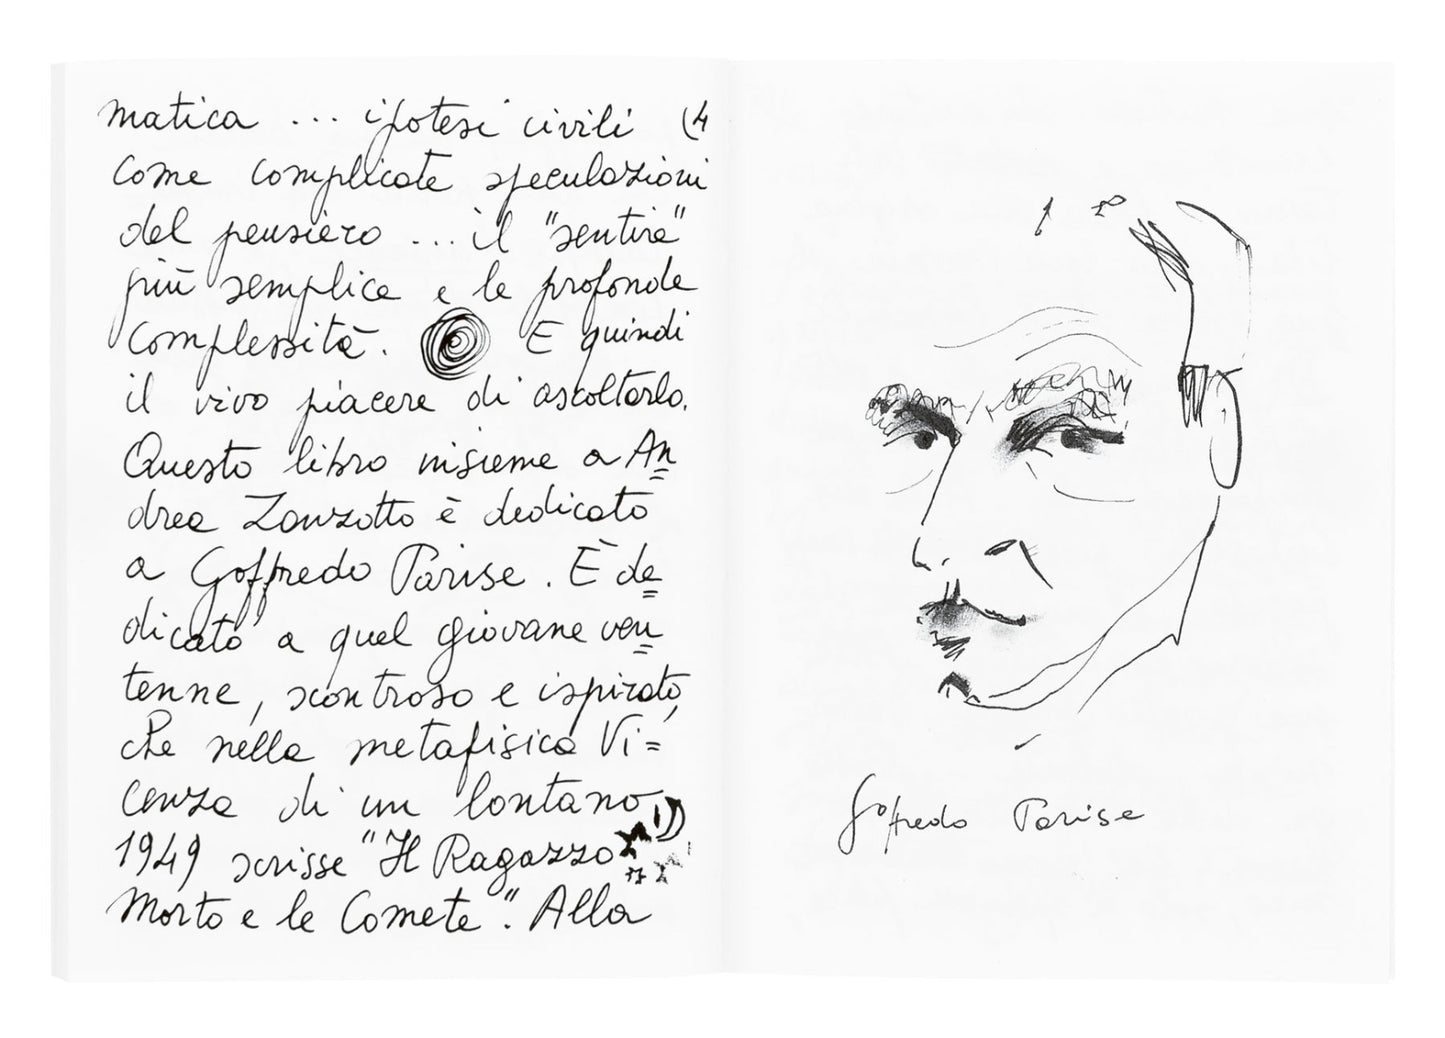 matica ... ipotesi civili (4
come complicate speculazioni
del pensiero ... il "sentire"
più semplice e le profonde
complessità. E quindi
il vivo piacere di ascoltarlo.
Questo libro insieme a An
drea Zanzotto è dedicato
a Goffredo Parise. È de
dicato a quel giovane ven
tenne, scontroso e ispirato,
che nella metafisica Vi=
cenza di un lontano
1949 scrisse "Il Ragazzo
Morto e le Comete". Alla
Goffredo Parise